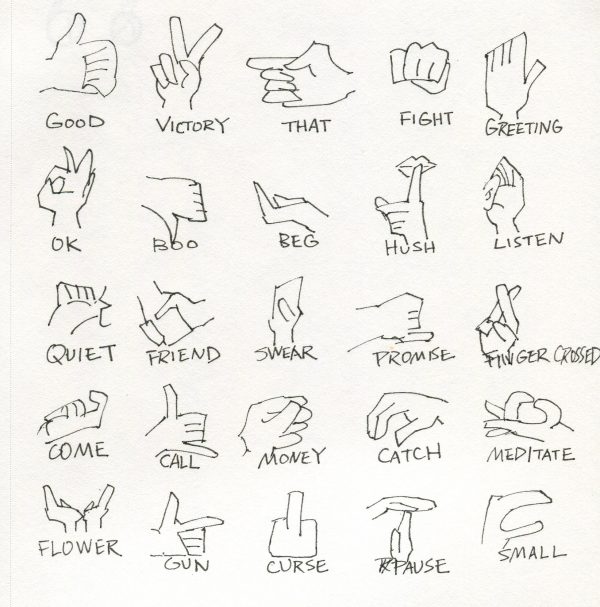 GOOD VICTORY THAT FIGHT GREETING
OK BOO BEG HUSH LISTEN
QUIET FRIEND SWEAR PROMISE FINGER CROSSED
COME CALL MONEY CATCH MEDITATE
FLOWER GUN CURSE PAUSE SMALL